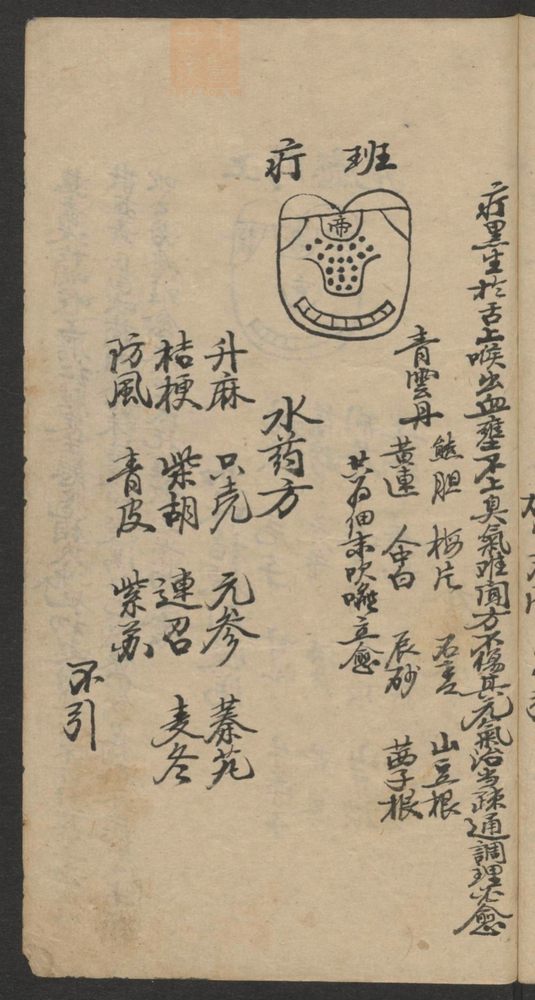 班疔
帝
疔黑生於舌上喉出血壅不上臭氣难闻方不傷其元氣治当疎通調理必愈
青雲丹
熊胆 梅片 石膏 山豆根
黄連 人中白 辰砂 茜子根
共为细末吹喉立愈
水药方
升麻 只壳 元参 蓁艽
桔梗 柴胡 連召 麦冬
防風 青皮 紫苏
不引